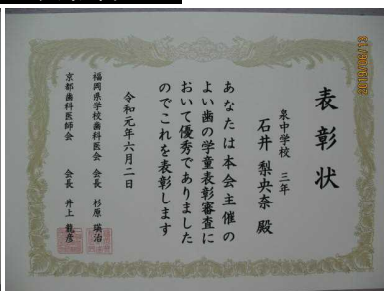 表彰状
泉中学校 三年
石井 梨央奈 殿
あなたは本会主催の
よい歯の学童表彰審査に
おいて優秀でありました
のでこれを表彰します
令和元年六月二日
福岡県学校歯科医会 会長 杉原 瑞治
京都歯科医師会 会長 井上 龍彦